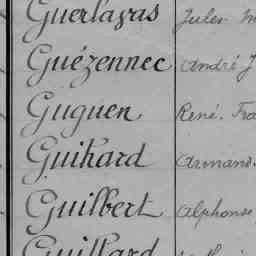 Guerlavas Jules. M
Guézennec André J
Guguen René. Fra
Guihard Armand.
Guilbert Alphonse
Guillard